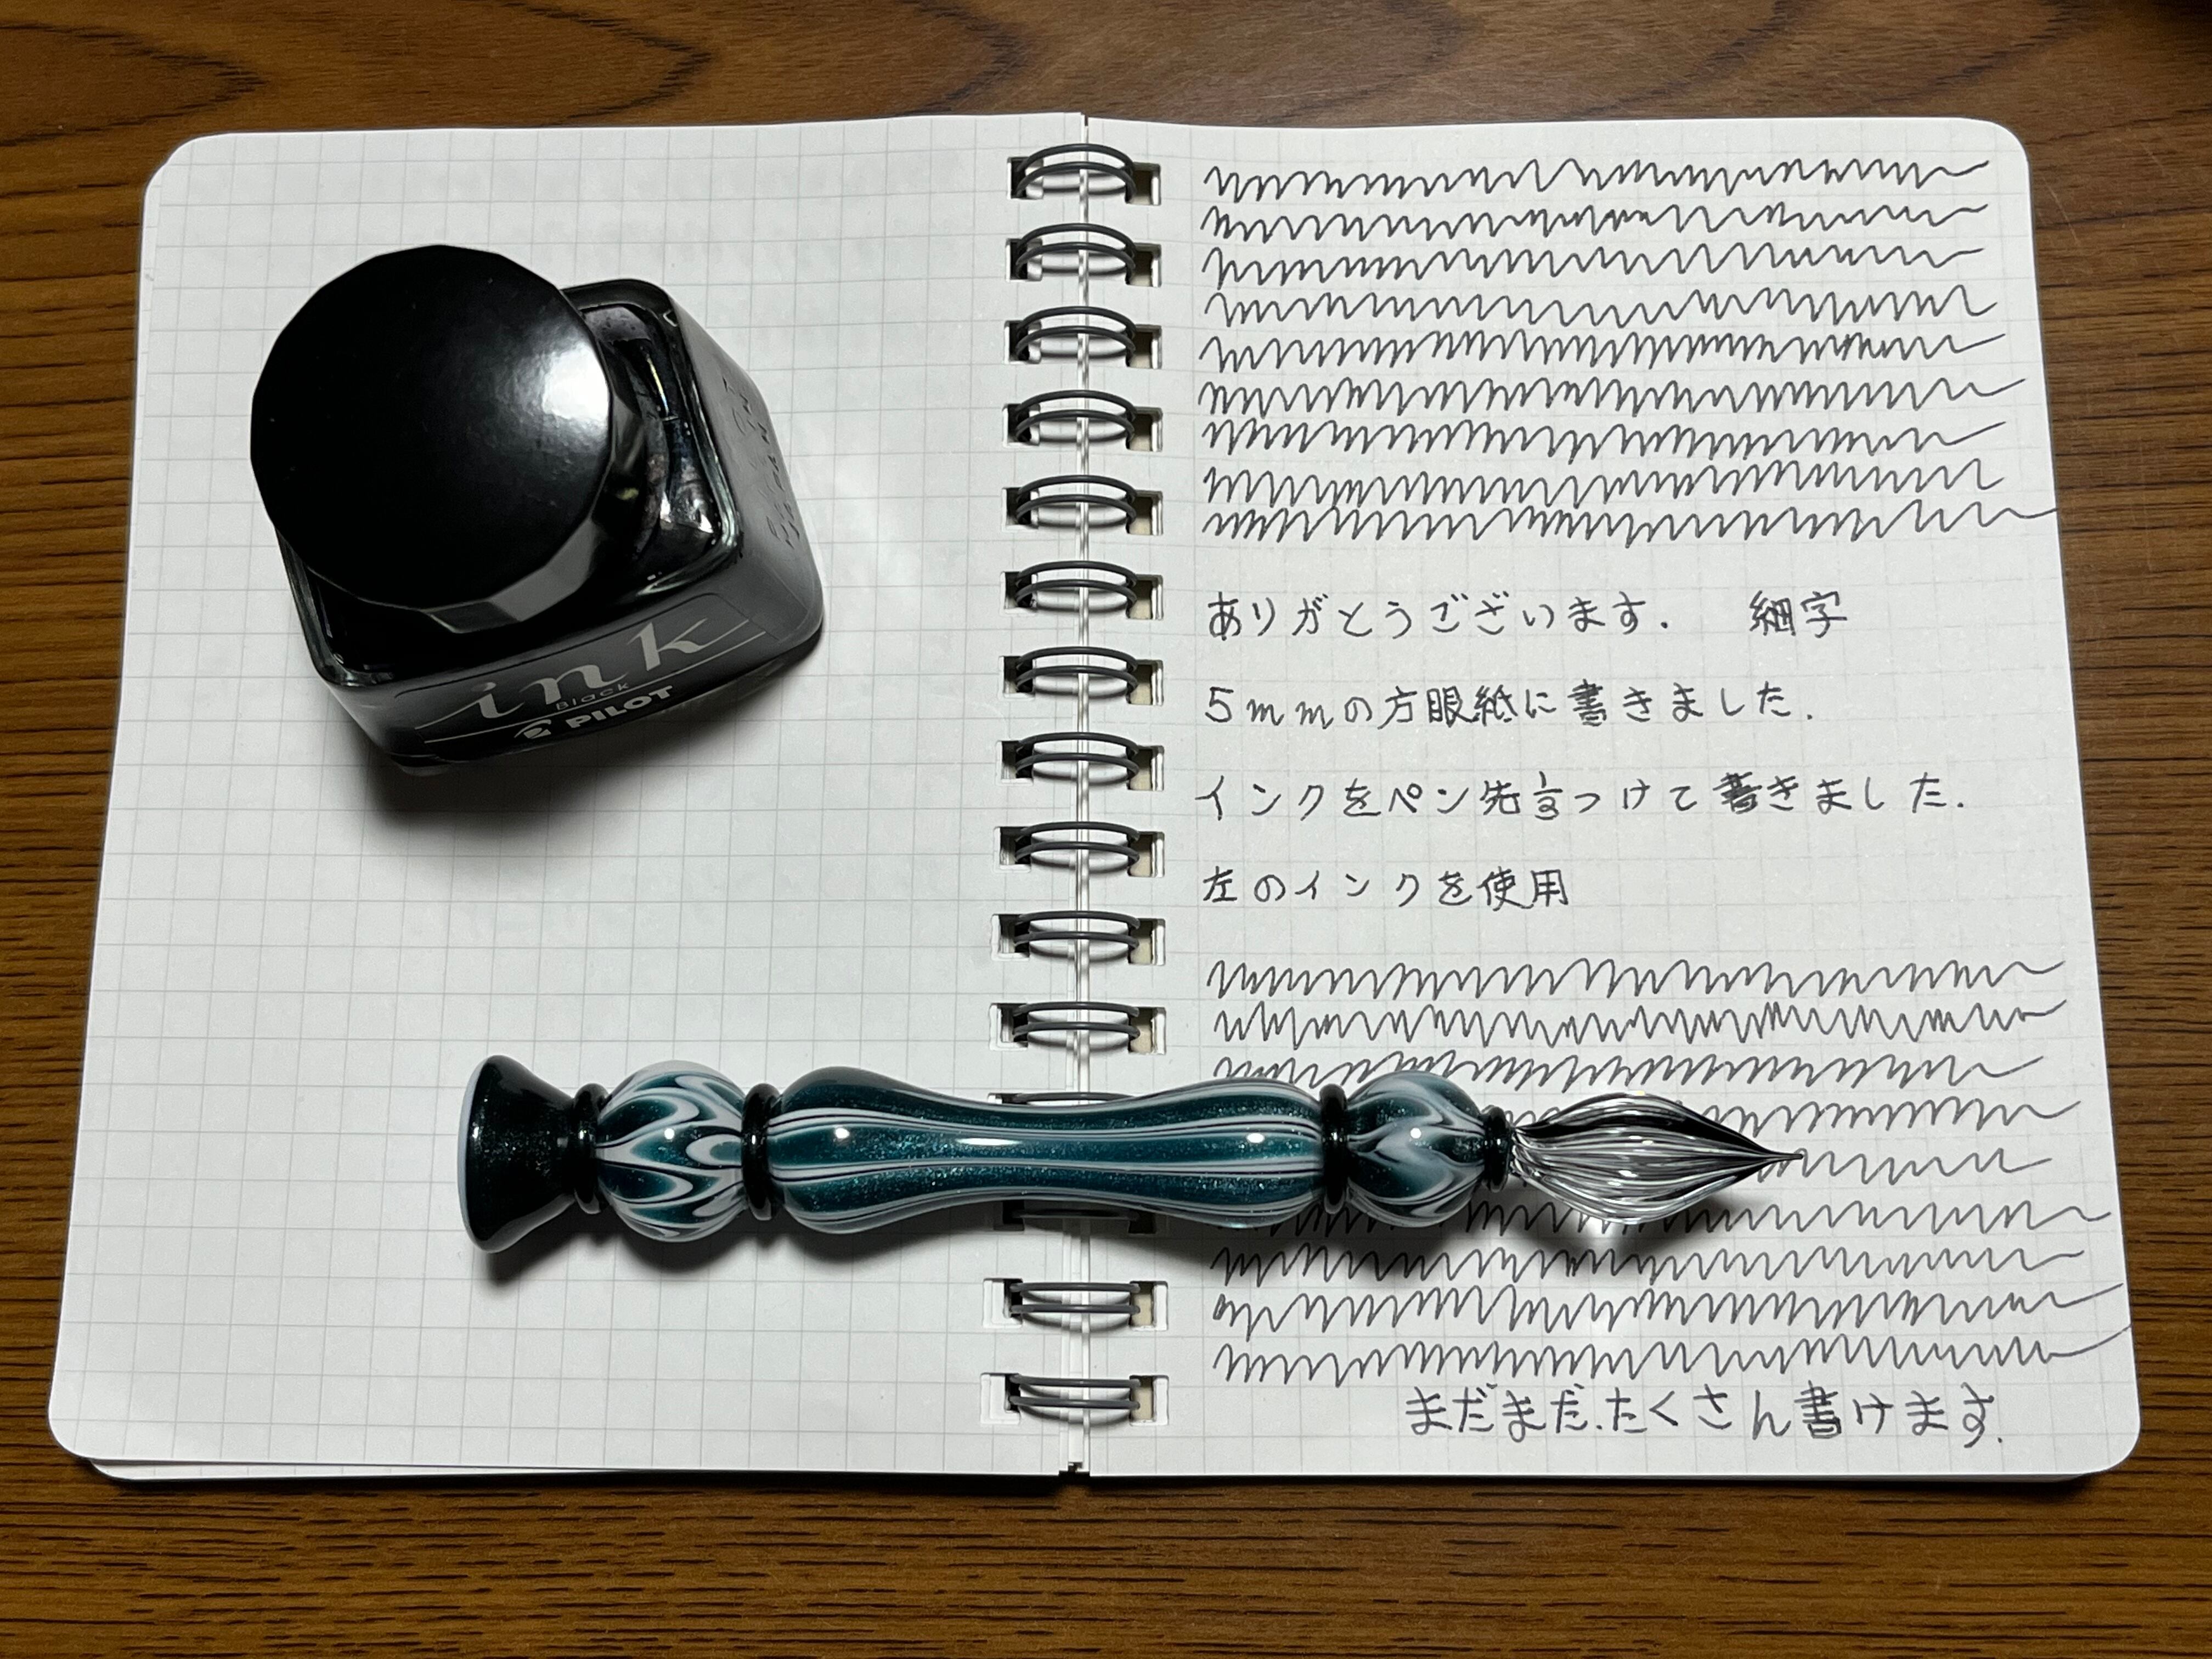 ink
Black
PILOT
ありがとうございます. 細字
5mmの方眼紙に書きました.
インクをペン先1/3つけて書きました.
左のインクを使用
まだまだ.たくさん書けます.